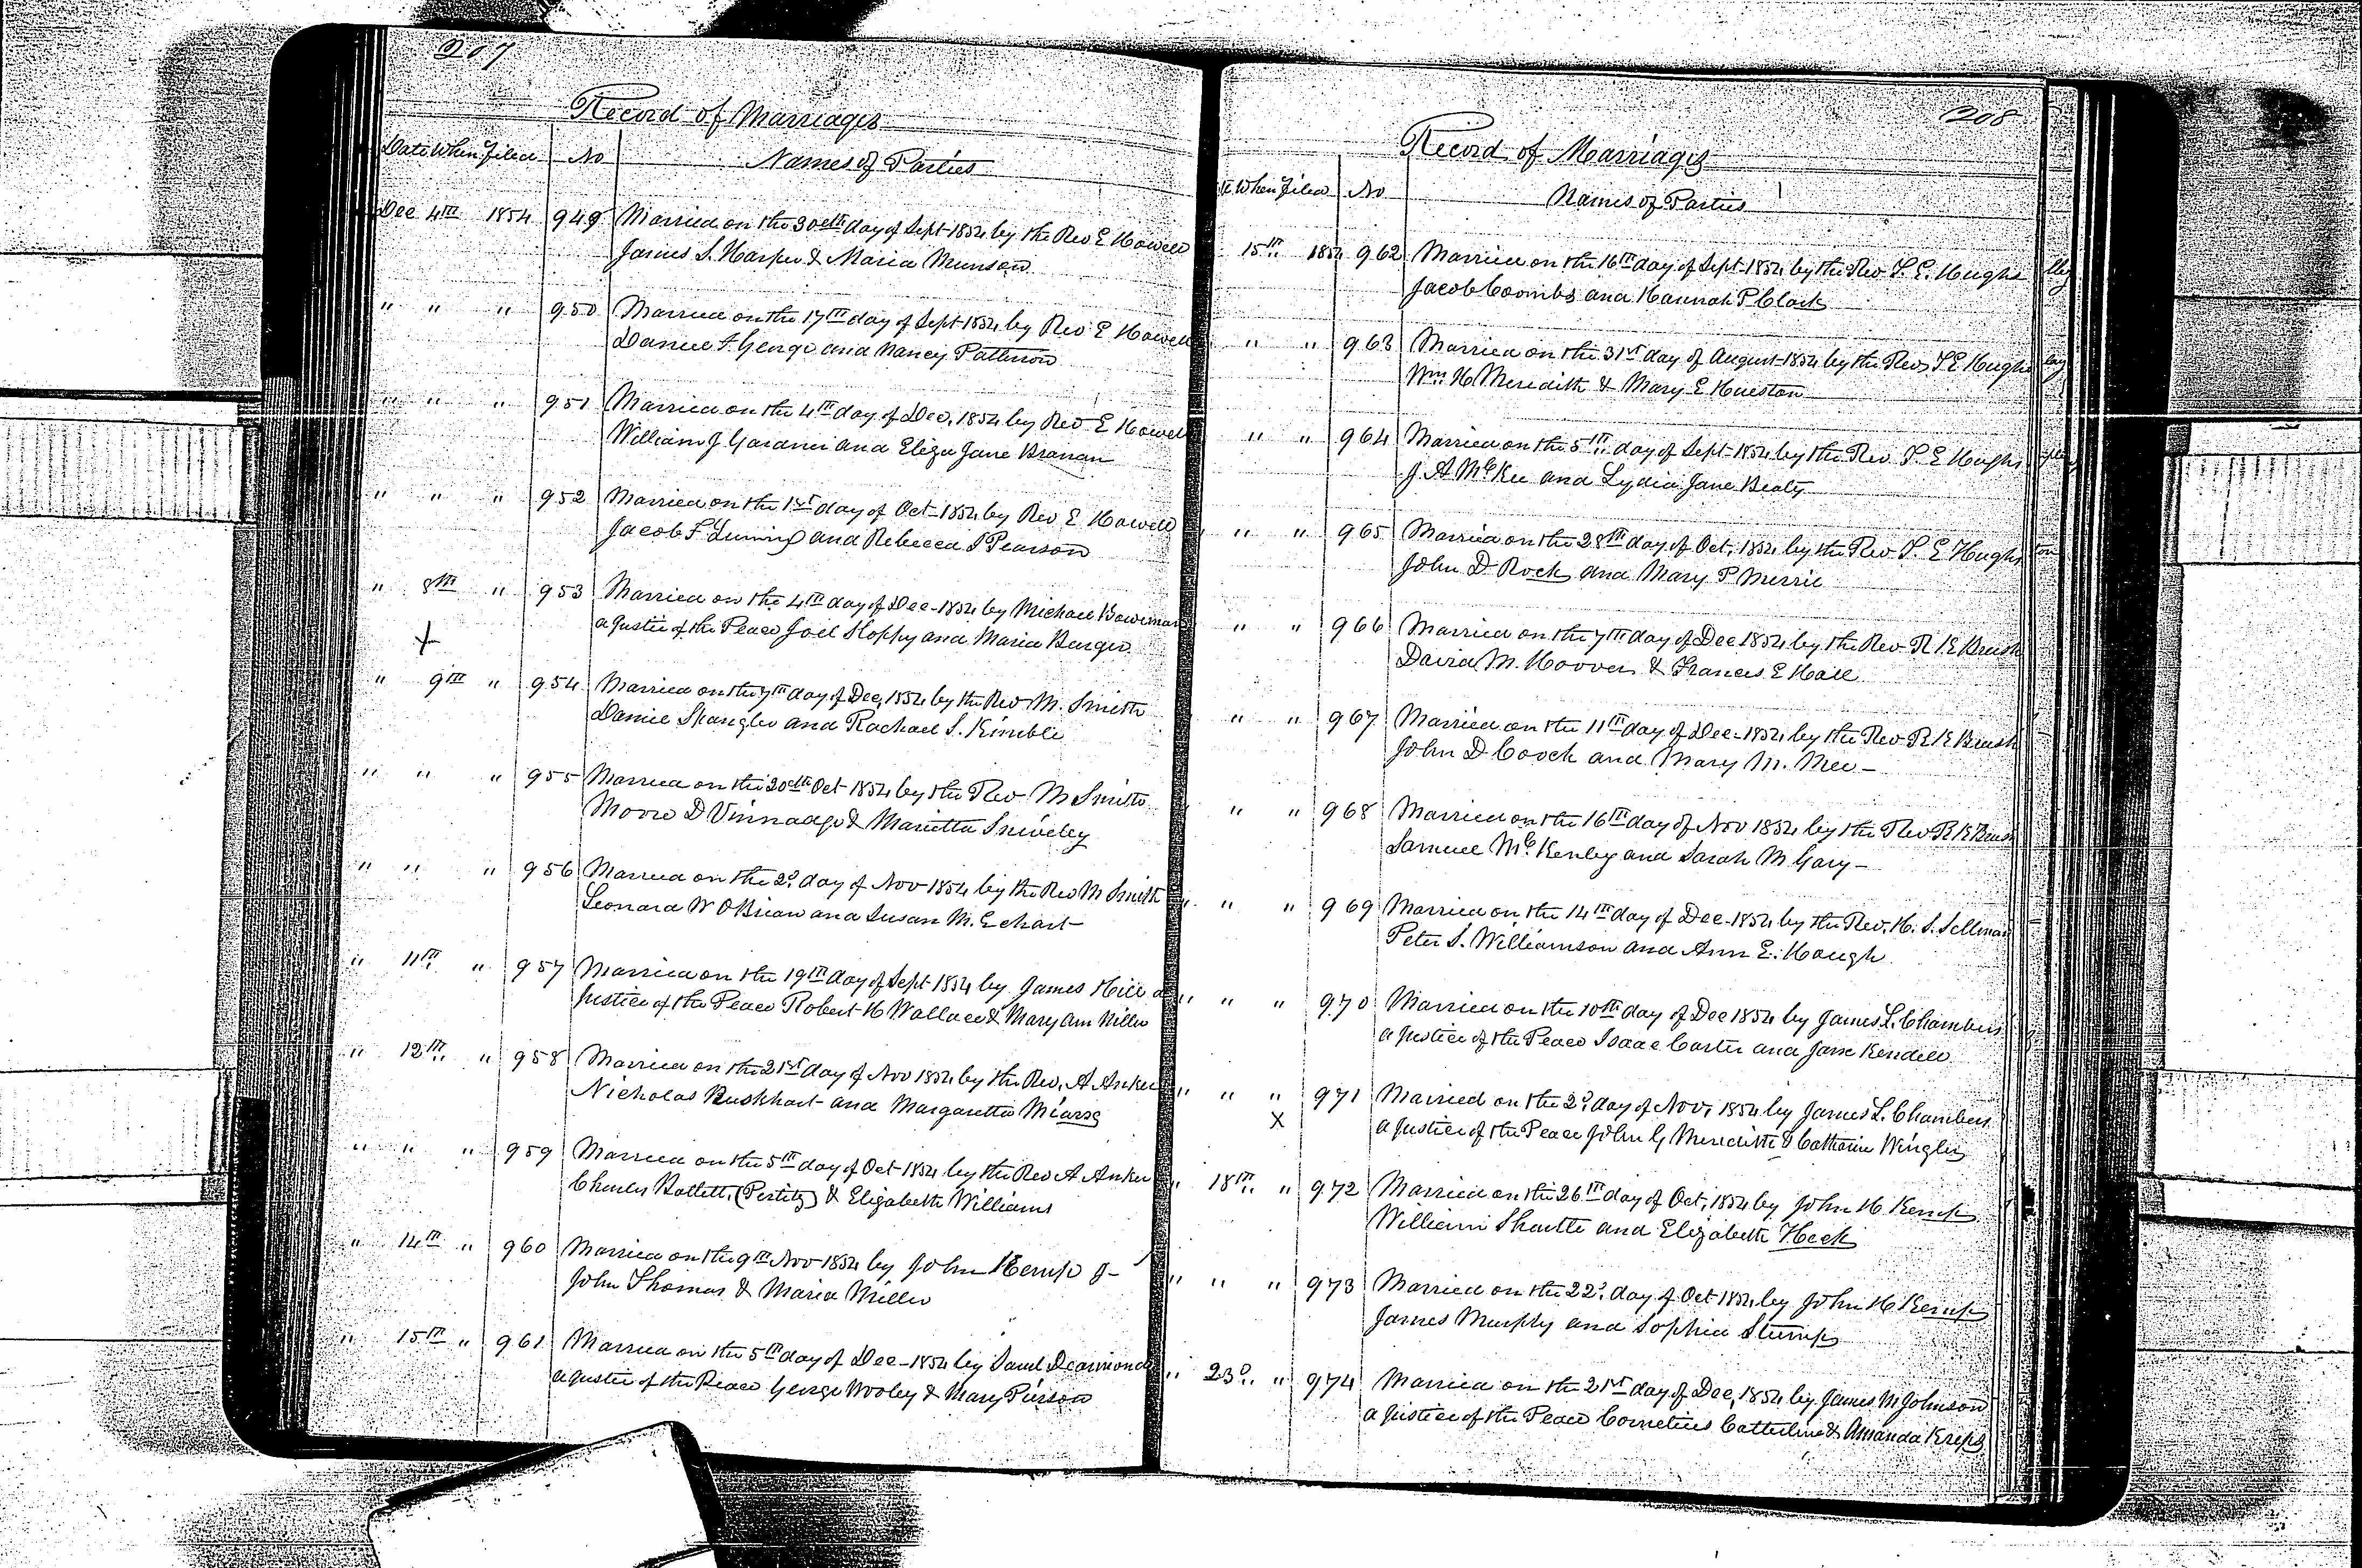 207
Record of Marriages
Date When Filed No Names of Parties
Dec 4th 1854 949 Married on the 30eth day of Sept 1854 by the Rev E Howell
James S. Harper & Maria Munson
" " " 950 Married on the 17th day of Sept 1854 by Rev E Howell
Daniel F George and Nancy Patterson
" " " 951 Married on the 4th day of Dec, 1854 by Rev E Howell
William J Gardner and Eliza Jane Branan
" " " 952 Married on the 1st day of Oct 1854 by Rev E Howell
Jacob F and Rebecca Pearson
" 8th " 953 Married on the 4th day of Dec 1854 by Michael Bowman
a Justice of the Peace Joel Hoppy and Maria Burger
X
" 9th " 954 Married on the 7th day of Dec, 1854 by the Rev M. Smith
Daniel Spangler and Rachael S. Kimble
" " " 955 Married on the 20eth Oct 1854 by the Rev M Smith
Moore D Vinnadge & Marietta Sniveley
" " " 956 Married on the 2d day of Nov 1854 by the Rev M Smith
Leonard W OBrian and Susan M. Echart
" 11th " 957 Married on the 19th day of Sept 1854 by James Hill a
Justice of the Peace Robert H Wallace & Mary Ann Miller
" 12th " 958 Married on the 21st day of Nov 1854 by the Rev, A Anker
Nicholas Buskhart and Margaretta
" " " 959 Married on the 5th day of Oct 1854 by the Rev A Anker
Charles (Pertitz) & Elizabeth Williams
" 14th " 960 Married on the 9th Nov 1854 by John Kemp J
John Thomas & Maria Miller
" 15th " 961 Married on the 5th day of Dec 1854 by Saml Dearmond
a Justice of the Peace George Wooley & Mary Pierson
208
Record of Marriages
When Filed No Names of Parties
15th 1854 962 Married on the 16th day of Sept 1854 by the Rev T. E. Hughs
Jacob Coombs and Hannah P Clark
" " 963 Married on the 31st day of August 1854 by the Rev, T E Hughs
Wm H Meredith & Mary E Hueston
" " 964 Married on the 5th day of Sept 1854 by the Rev T. E Hughs
J. A McKee and Lydia Jane Beaty
" " 965 Married on the 28th day of Oct, 1854 by the Rev T. E Hughs
John D Rock and Mary P Merrie
" " 966 Married on the 7th day of Dec 1854 by the Rev R K Brush
David M. Hoover & Frances E Hall
" " 967 Married on the 11th day of Dec 1854 by the Rev R K Brush
John D Cooch and Mary M. Mee
" " 968 Married on the 16th day of Nov 1854 by the Rev R K Brush
Samuel McKenley and Sarah M Gary
" " " 969 Married on the 14th day of Dec 1854 by the Rev. H. S. Sellman
Peter S. Williamson and Ann E. Hough
" " " 970 Married on the 10th day of Dec 1854 by James L. Chambers
a Justice of the Peace Isaac Carter and Jane Kendell
" " " 971 Married on the 2d day of Nov, 1854 by James L. Chambers
X a Justice of the Peace John G Meredith & Catharine Wingler
" 18th " 972 Married on the 26th day of Oct, 1854 by John H. Kemp
William Shartle and Elizabeth Heck
" " " 973 Married on the 22d day of Oct 1854 by John H Kemp
James Murphy and Sophia Stump
" 23d " 974 Married on the 21st day of Dec, 1854 by James M Johnson
a Justice of the Peace Cornelius Catterline & Amanda Kreps